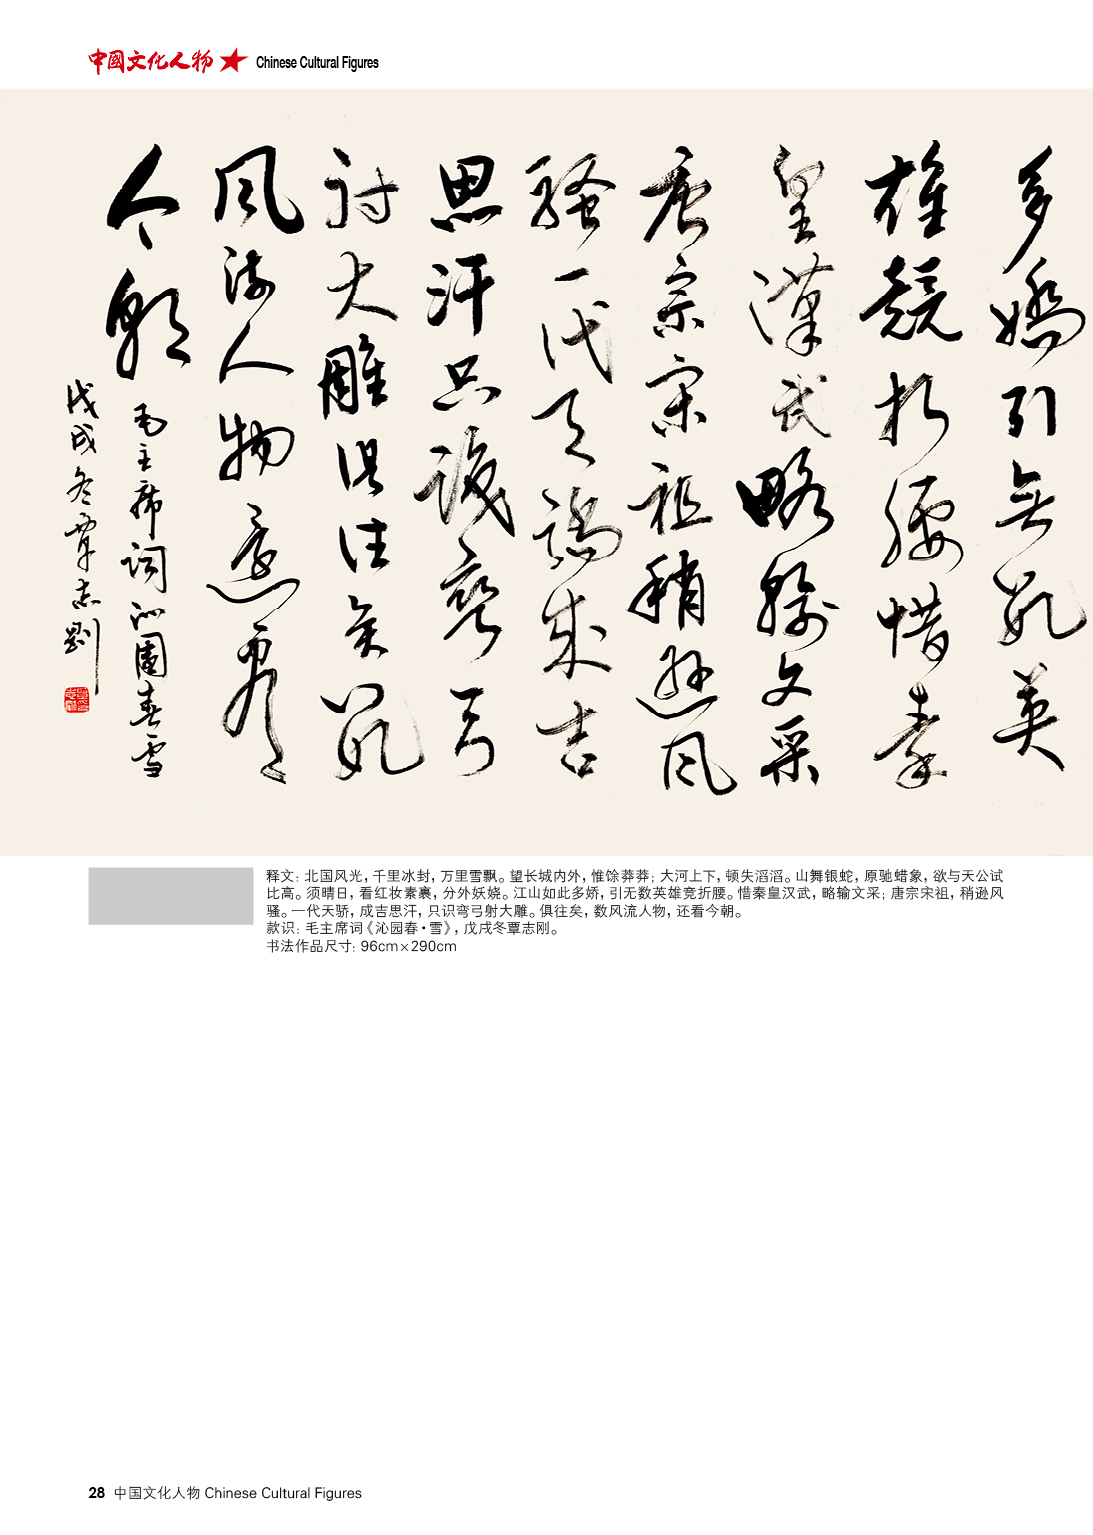 中國文化人物 Chinese Cultural Figures
多嬌引無數英
雄競折腰惜秦
皇漢武略輸文采
唐宗宋祖稍遜風
騷一代天驕成吉
思汗只識彎弓
射大雕俱往矣數
風流人物還看
今朝
毛主席詞沁園春雪
戊戌冬覃志剛
释文：北国风光，千里冰封，万里雪飘。望长城内外，惟馀莽莽；大河上下，顿失滔滔。山舞银蛇，原驰蜡象，欲与天公试
比高。须晴日，看红妆素裹，分外妖娆。江山如此多娇，引无数英雄竞折腰。惜秦皇汉武，略输文采；唐宗宋祖，稍逊风
骚。一代天骄，成吉思汗，只识弯弓射大雕。俱往矣，数风流人物，还看今朝。
款识：毛主席词《沁园春·雪》，戊戌冬覃志刚。
书法作品尺寸：96cm×290cm
28 中国文化人物 Chinese Cultural Figures